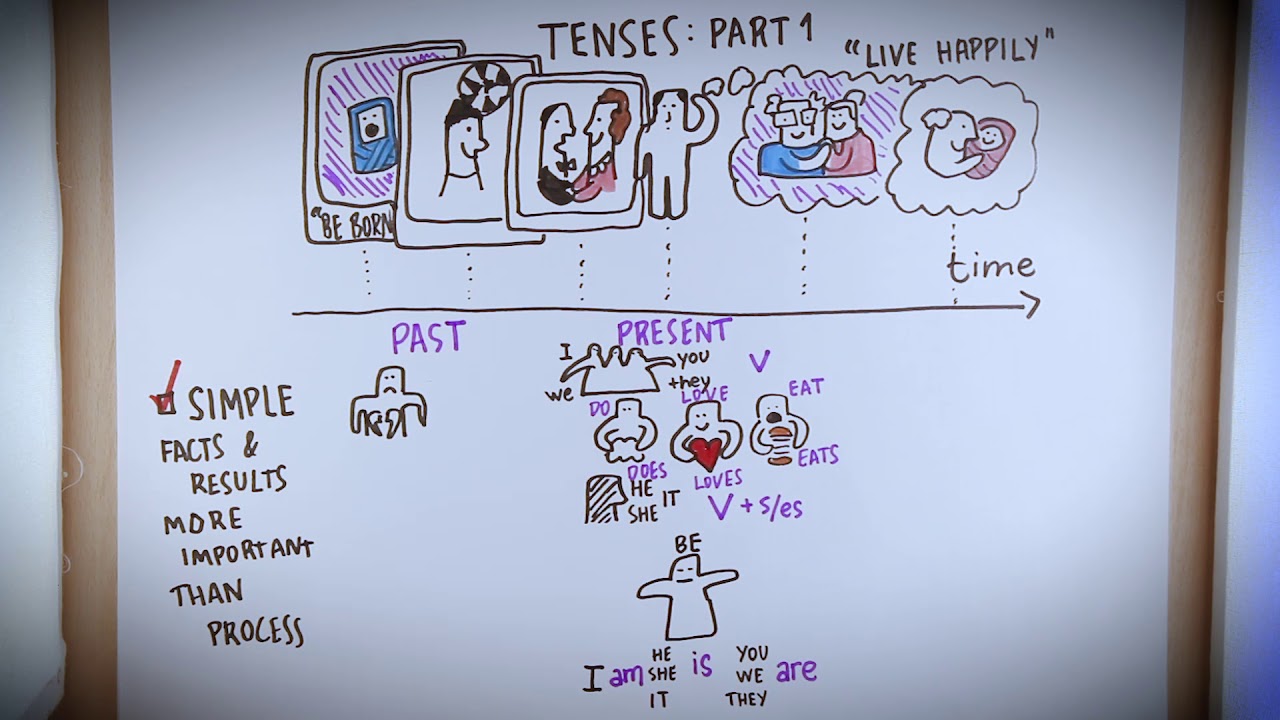 TENSES: PART 1
"LIVE HAPPILY"
"BE BORN
time
PAST
PRESENT
SIMPLE
FACTS &
RESULTS
MORE
IMPORTANT
THAN
PROCESS
I
YOU
we
they
V
DO
LOVE
EAT
DOES
LOVES
EATS
HE
SHE
IT
V + s/es
BE
I am
HE
SHE
IT
is
YOU
WE
THEY
are